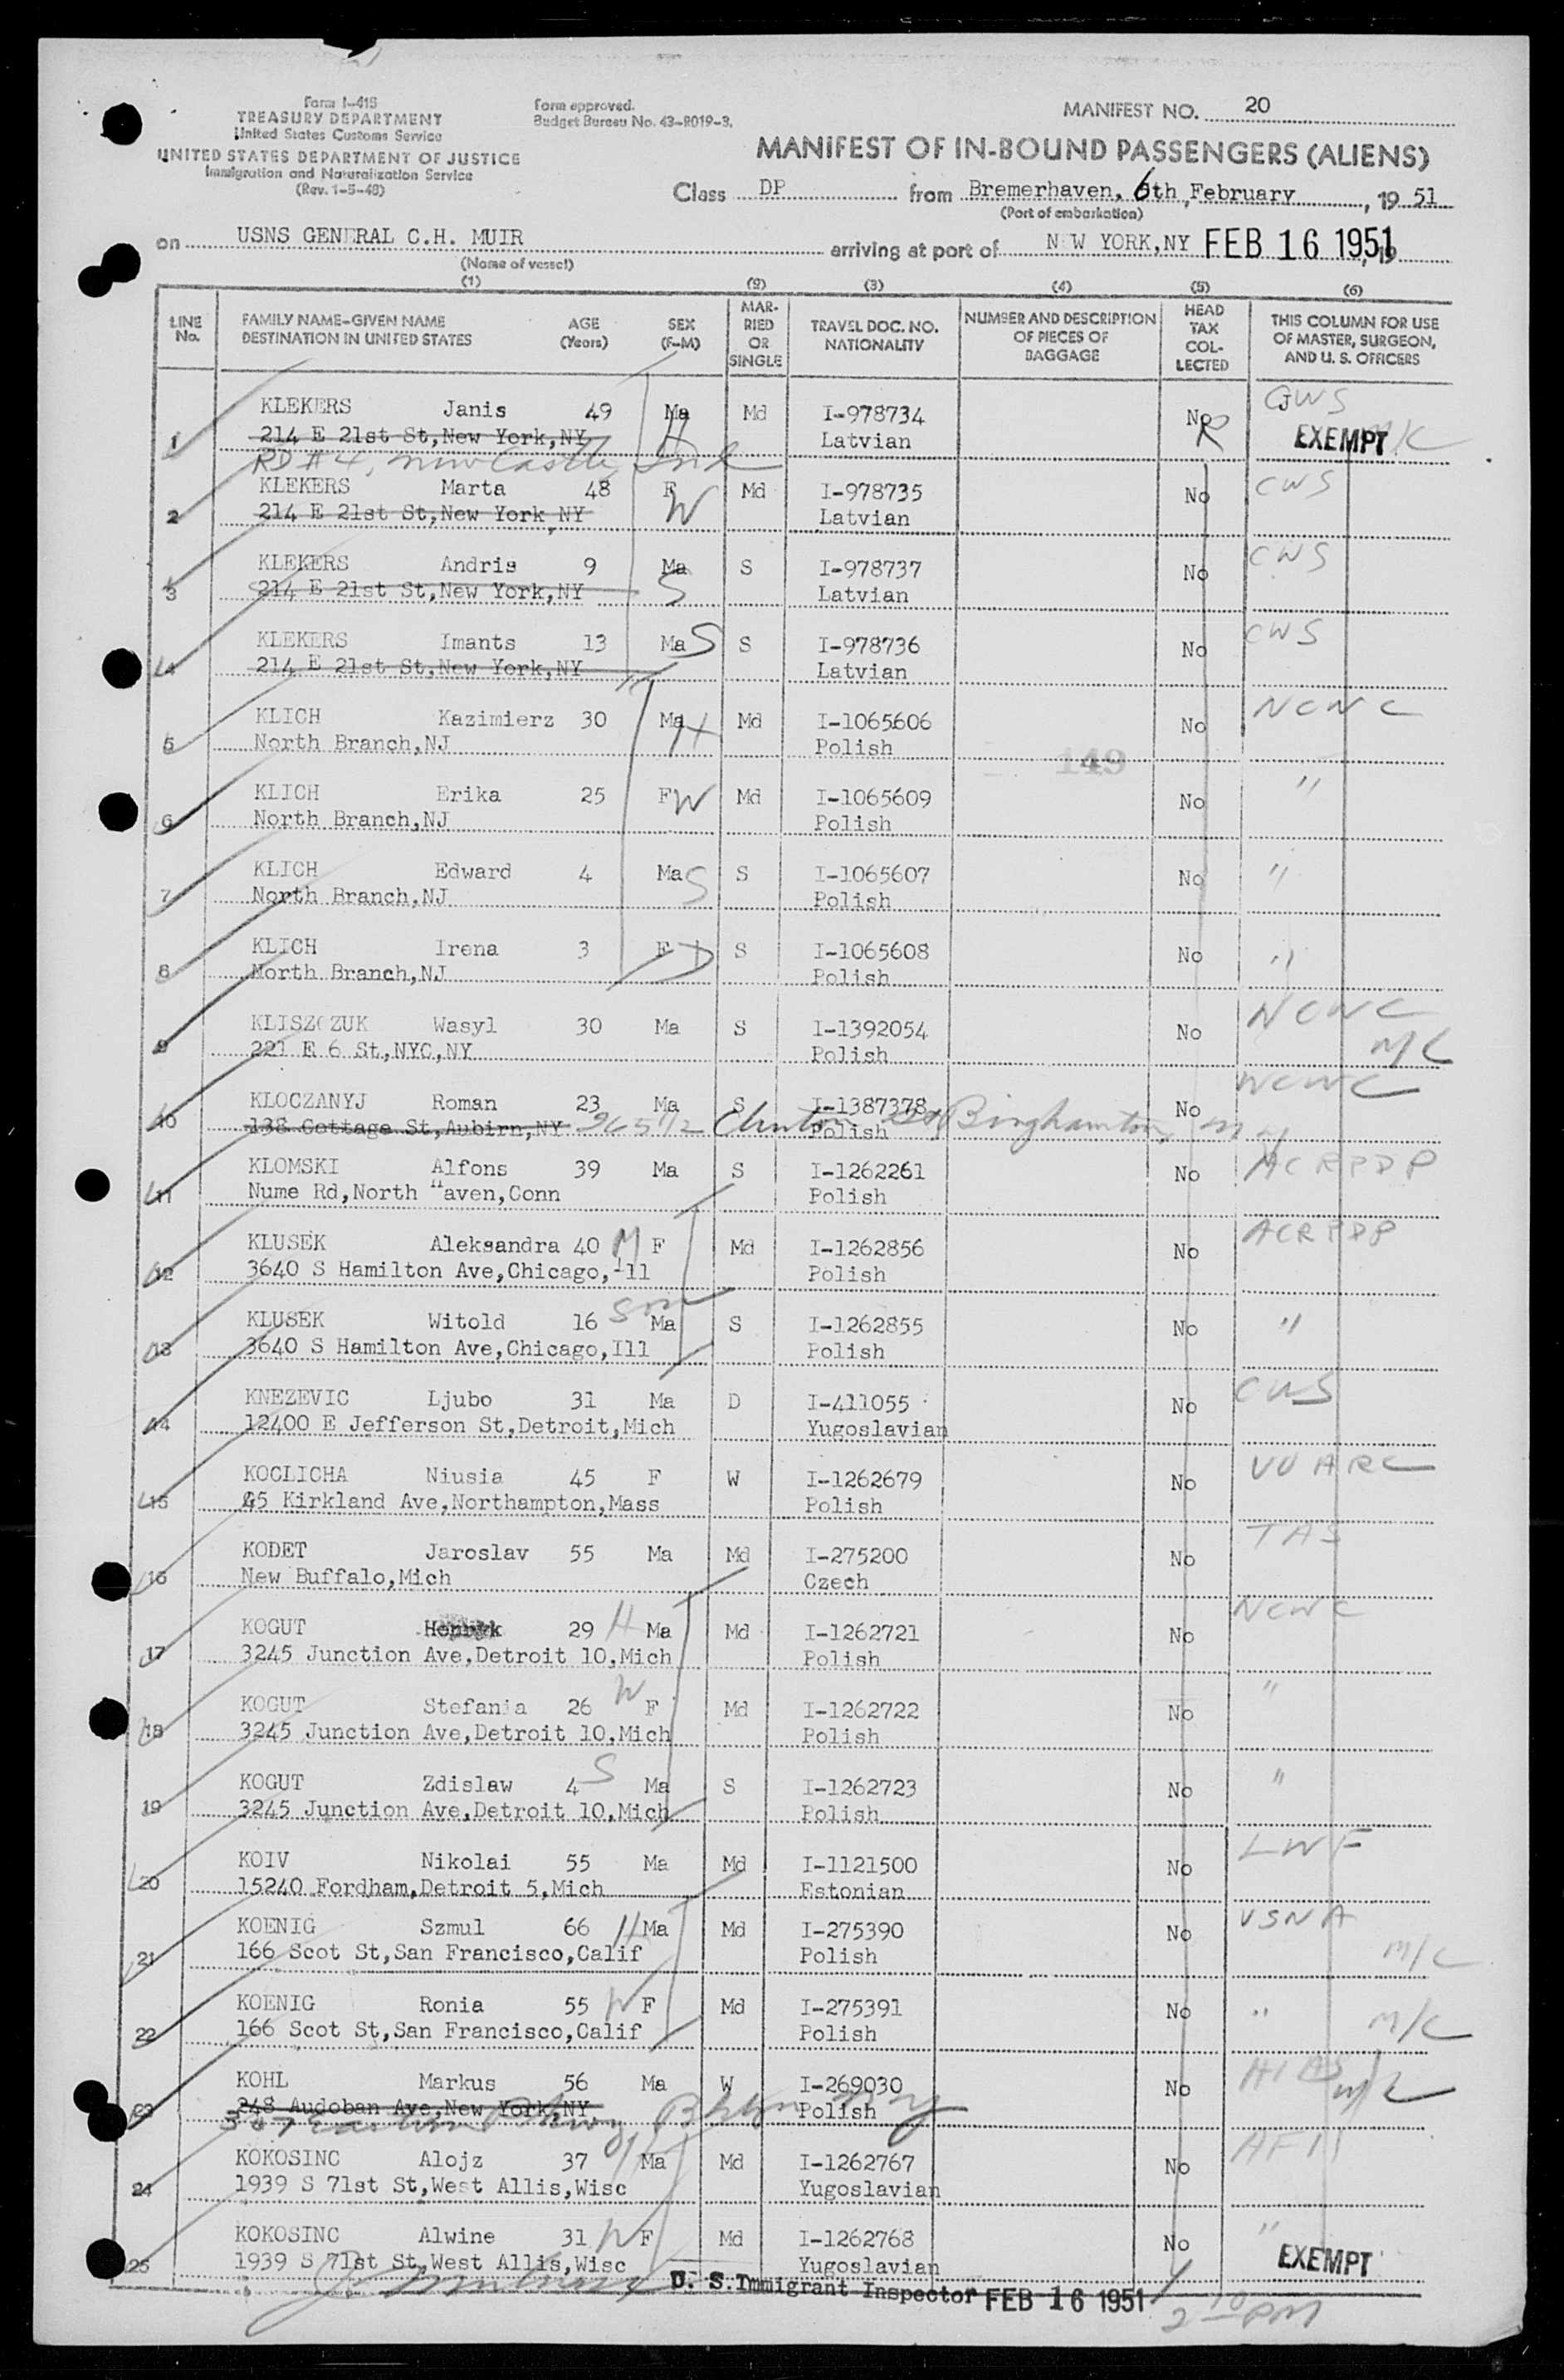 Form I-418
TREASURY DEPARTMENT
United States Customs Service
UNITED STATES DEPARTMENT OF JUSTICE
Immigration and Naturalization Service
(Rev. 1-5-48)
Form approved.
Budget Bureau No. 43-R019-3.
MANIFEST NO. 20
MANIFEST OF IN-BOUND PASSENGERS (ALIENS)
Class DP from Bremerhaven, 6th, February, 19 51
(Port of embarkation)
on USNS GENERAL C.H. MUIR arriving at port of N W YORK,NY FEB 16 1951, 19
(Name of vessel)
(1) (2) (3) (4) (5) (6)
LINE No. FAMILY NAME-GIVEN NAME DESTINATION IN UNITED STATES AGE (Years) SEX (F-M) MARRIED OR SINGLE TRAVEL DOC. NO. NATIONALITY NUMBER AND DESCRIPTION OF PIECES OF BAGGAGE HEAD TAX COLLECTED THIS COLUMN FOR USE OF MASTER, SURGEON, AND U. S. OFFICERS
1 KLEKERS Janis 49 Ma H Md I-978734 No R CWS
214 E 21st St,New York,NY Latvian EXEMPT M/C
RD #4, New Castle, Ind
2 KLEKERS Marta 48 F W Md I-978735 No CWS
214 E 21st St,New York,NY Latvian
3 KLEKERS Andris 9 Ma S S I-978737 No CWS
214 E 21st St,New York,NY Latvian
4 KLEKERS Imants 13 Ma S S I-978736 No CWS
214 E 21st St,New York,NY Latvian
5 KLICH Kazimierz 30 Ma H Md I-1065606 No NCWC
North Branch,NJ Polish
149
6 KLICH Erika 25 F W Md I-1065609 No "
North Branch,NJ Polish
7 KLICH Edward 4 Ma S S I-1065607 No "
North Branch,NJ Polish
8 KLICH Irena 3 F D S I-1065608 No "
North Branch,NJ Polish
9 KLISZCZUK Wasyl 30 Ma S I-1392054 No NCWC
221 E 6 St,NYC,NY Polish M/C
10 KLOCZANYJ Roman 23 Ma S I-1387378 No NCWC
138 Cottage St,Aubirn,NY 265 1/2 Clinton St Binghamton, NY Polish
11 KLOMSKI Alfons 39 Ma S I-1262261 No ACRPDP
Nume Rd,North Haven,Conn Polish
12 KLUSEK Aleksandra 40 M F Md I-1262856 No ACRPDP
3640 S Hamilton Ave,Chicago,Ill Polish
13 KLUSEK Witold 16 Son Ma S I-1262855 No "
3640 S Hamilton Ave,Chicago,Ill Polish
14 KNEZEVIC Ljubo 31 Ma D I-411055 No CWS
12400 E Jefferson St,Detroit,Mich Yugoslavian
15 KOCLICHA Niusia 45 F W I-1262679 No UUARC
45 Kirkland Ave,Northampton,Mass Polish
16 KODET Jaroslav 55 Ma Md I-275200 No TAS
New Buffalo,Mich Czech
17 KOGUT Henryk 29 H Ma Md I-1262721 No NCWC
3245 Junction Ave,Detroit 10,Mich Polish
18 KOGUT Stefania 26 W F Md I-1262722 No "
3245 Junction Ave,Detroit 10,Mich Polish
19 KOGUT Zdislaw 4 S Ma S I-1262723 No "
3245 Junction Ave,Detroit 10,Mich Polish
20 KOIV Nikolai 55 Ma Md I-1121500 No LWF
15240 Fordham,Detroit 5,Mich Estonian
21 KOENIG Szmul 66 H Ma Md I-275390 No USNA
166 Scot St,San Francisco,Calif Polish M/C
22 KOENIG Ronia 55 W F Md I-275391 No "
166 Scot St,San Francisco,Calif Polish M/C
23 KOHL Markus 56 Ma W I-269030 No HIAS M/C
248 Audoban Ave,New York,NY Polish
307 Eastern Pkwy, Bklyn NY
24 KOKOSINC Alojz 37 H Ma Md I-1262767 No
1939 S 71st St,West Allis,Wisc Yugoslavian
25 KOKOSINC Alwine 31 W F Md I-1262768 No "
1939 S 71st St,West Allis,Wisc Yugoslavian EXEMPT
U. S. Immigrant Inspector FEB 16 1951
2 10 PM